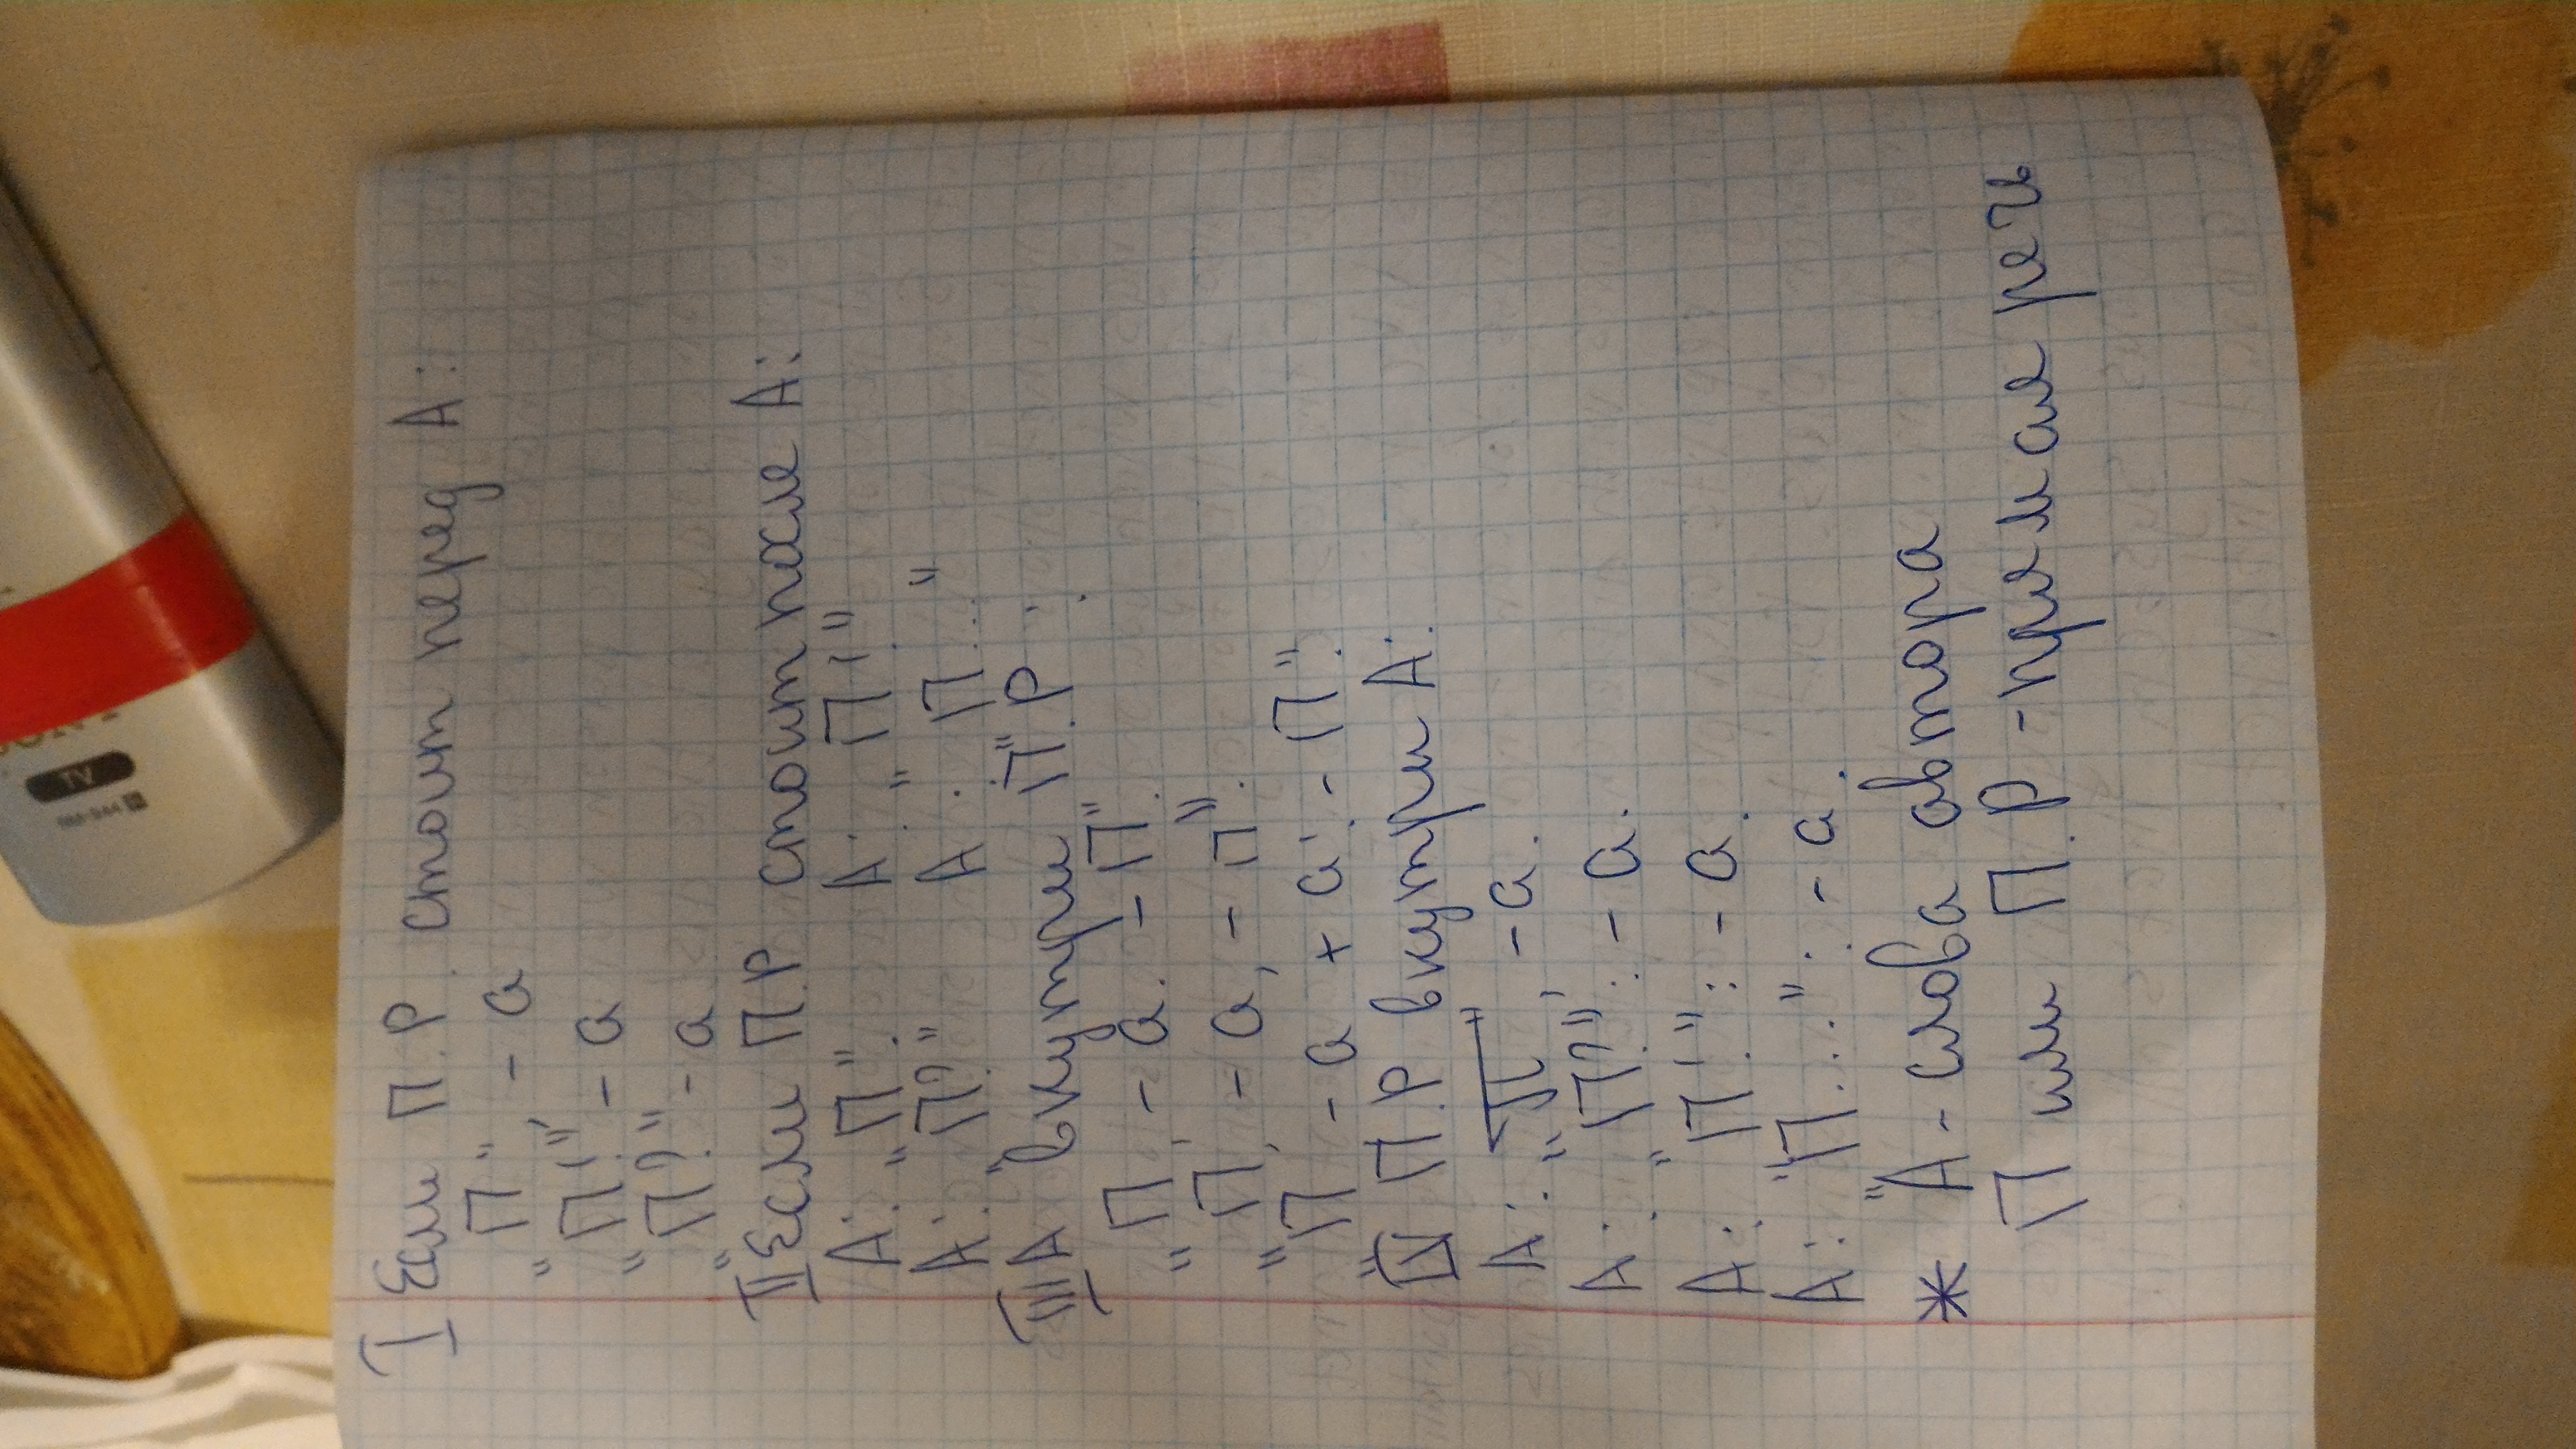 I Если П.Р. стоит перед А:
"П" - а
"П!" - а
"П?" - а
II Если П.Р стоит после А:
А: "П". А: "П!"
А: "П?" А: "П..."
III А внутри П.Р:
"П, - а. - П".
"П, - а, - П".
"П - а + а: - П".
IV П.Р внутри А:
А: "П", - а.
А: "П?": - а.
А: "П!": - а.
А: "П...": - а.
* А - слова автора
П или П.Р - прямая речь
TV